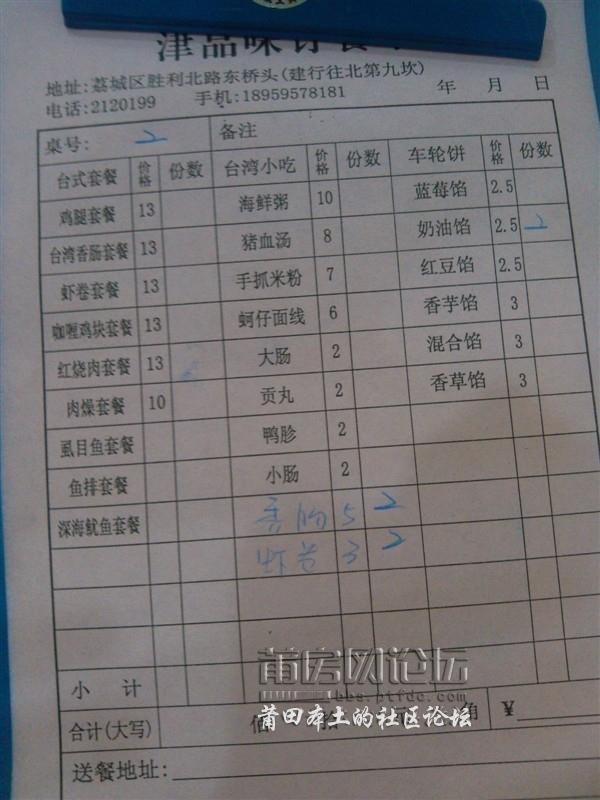 津品味订餐单
地址:荔城区胜利北路东桥头(建行往北第九坎)
电话:2120199 手机:18959578181 年 月 日
桌号: 2 备注
台式套餐 价格 份数 台湾小吃 价格 份数 车轮饼 价格 份数
鸡腿套餐 13 海鲜粥 10 蓝莓馅 2.5
台湾香肠套餐 13 猪血汤 8 奶油馅 2.5 2
虾卷套餐 13 手抓米粉 7 红豆馅 2.5
咖喱鸡块套餐 13 蚵仔面线 6 香芋馅 3
红烧肉套餐 13 大肠 2 混合馅 3
肉燥套餐 10 贡丸 2 香草馅 3
虱目鱼套餐 鸭胗 2
鱼排套餐 小肠 2
深海鱿鱼套餐 香肠 5 2
虾卷 3 2
小 计
莆房网论坛
bbs.ptfdc.com
合计(大写) 佰 拾 元 角 ¥
莆田本土的社区论坛
送餐地址: